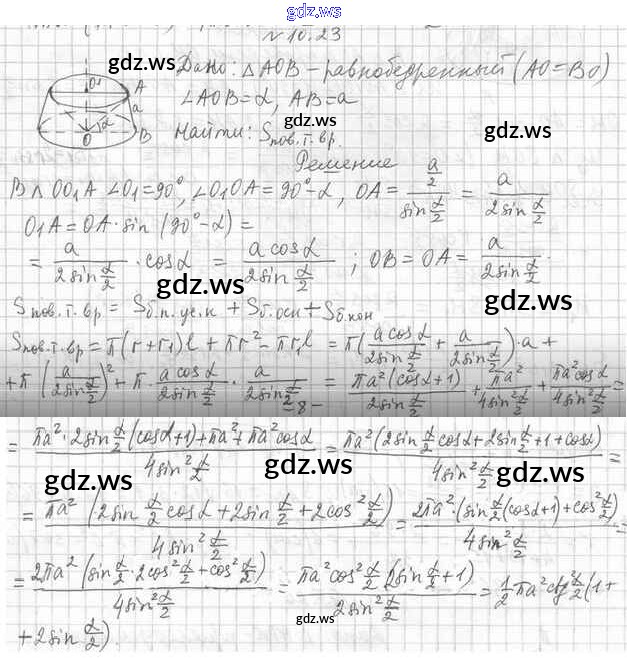 gdz.ws
№ 10.23
Дано: △AOB – равнобедренный (AO=BO)
∠AOB=α, AB=a
Найти: Sпов.т.вр.
Решение
В △ OO₁A ∠O₁=90°, ∠O₁OA = 90°-α, OA = (a/2)/(sin α/2) = a/(2sin α/2)
O₁A = OA·sin(90°-α) =
= a/(2sin α/2) · cosα = (a cosα)/(2sin α/2) ; OB = OA = a/(2sin α/2).
Sпов.т.вр = Sб.п.ус.к + Sб.осн + Sб.кон
Sпов.т.вр = π(r+r₁)l + πr² - πr₁l = π((a cosα)/(2sin α/2) + a/(2sin α/2))·a +
+ π (a/(2sin α/2))² + π · (a cosα)/(2sin α/2) · a/(2sin α/2) = (πa²(cosα+1))/(2sin α/2) + πa²/(4sin² α/2) + (πa²cosα)/(4sin² α/2) =
– 8 –
= (πa²·2sin α/2 (cosα+1)+πa²+πa²cosα)/(4sin² α/2) = (πa²(2sin α/2 cosα+2sin α/2+1+cosα))/(4sin² α/2) =
= (πa² (2sin α/2 cosα+2sin α/2+2cos² α/2))/(4sin² α/2) = (2πa²·(sin α/2 (cosα+1)+cos² α/2))/(4sin² α/2) =
= (2πa² (sin α/2 · 2cos² α/2 + cos² α/2))/(4sin² α/2) = (πa²cos² α/2 (2sin α/2 +1))/(2sin² α/2) = 1/2 πa²ctg² α/2 (1+
+2sin α/2).
O₁
A
a
α
B
O
gdz.ws
gdz.ws
gdz.ws
gdz.ws
gdz.ws
gdz.ws
gdz.ws
gdz.ws
gdz.ws
gdz.ws
gdz.ws
gdz.ws